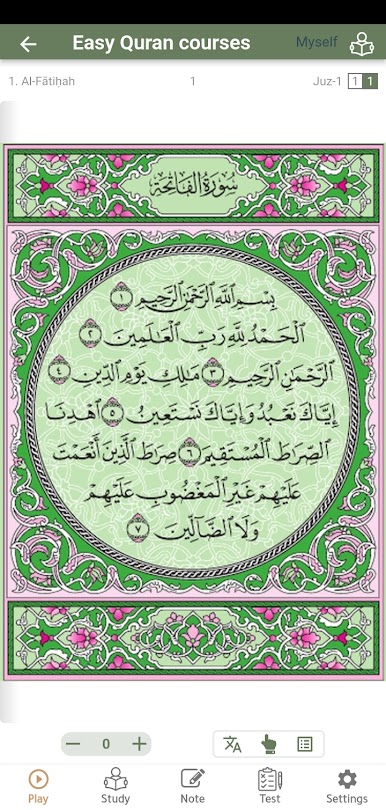 Easy Quran courses
Myself
1. Al-Fātiḥah
1
Juz-1
1 1
سُورَةُ الفَاتِحَةِ
بِسْمِ ٱللَّهِ ٱلرَّحْمَٰنِ ٱلرَّحِيمِ ١
ٱلْحَمْدُ لِلَّهِ رَبِّ ٱلْعَٰلَمِينَ ٢
ٱلرَّحْمَٰنِ ٱلرَّحِيمِ ٣ مَٰلِكِ يَوْمِ ٱلدِّينِ ٤
إِيَّاكَ نَعْبُدُ وَإِيَّاكَ نَسْتَعِينُ ٥ ٱهْدِنَا
ٱلصِّرَٰطَ ٱلْمُسْتَقِيمَ ٦ صِرَٰطَ ٱلَّذِينَ أَنْعَمْتَ
عَلَيْهِمْ غَيْرِ ٱلْمَغْضُوبِ عَلَيْهِمْ
وَلَا ٱلضَّآلِّينَ ٧
0
Play
Study
Note
Test
Settings